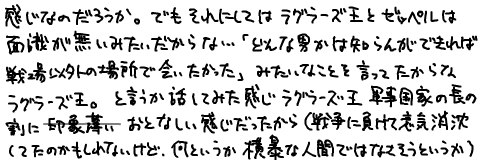 感じなのだろうか。でもそれにしてはラグラーズ王とゼッペルは
面識が無いみたいだからな…「どんな男かは知らんができれば
戦場以外の場所で会いたかった」みたいなことを言ってたからな
ラグラーズ王。と言うか話してみた感じラグラーズ王 軍事国家の長の
割に印象薄い おとなしい感じだったから(戦争に負けて意気消沈
してたのかもしれないけど、何というか横暴な人間ではなさそうというか)